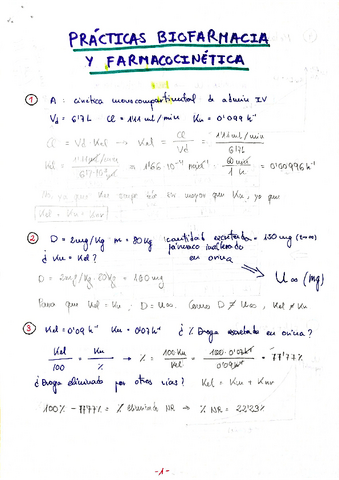 PRÁCTICAS BIOFARMACIA
Y FARMACOCINÉTICA
① A: cinética monocompartimental de admin IV
Vd = 6'7 L Cl = 1'11 ml/min Ku = 0'099 h⁻¹
Cl = Vd · Kel → Kel = Cl / Vd = 1'11 ml/min / 6'7 L
Kel = = 1'66·10⁻⁴ min⁻¹ · 60 min / 1 h = 0'00996 h⁻¹
Kel = Ku + Knr
② D = 2mg/Kg · m = 80Kg cantidad excretada = 150 mg
fármaco inalterado
¿ Ku = Kel? en orina
D = 2mg/Kg · 80Kg = 160 mg U∞ (mg)
Para que Kel = Ku, D = U∞. Como D ≠ U∞, Kel ≠ Ku
③ Kel = 0'09 h⁻¹ Ku = 0'07 h⁻¹ ¿ % Droga excretada en orina?
Kel / 100 = Ku / % → % = 100 Ku / Kel = 100 · 0'07 h⁻¹ / 0'09 h⁻¹ = 77'77%
¿ Droga eliminada por otras vías? Kel = Ku + Knr
100% - 77'77% = % eliminada NR → % NR = 22'23%
-1-